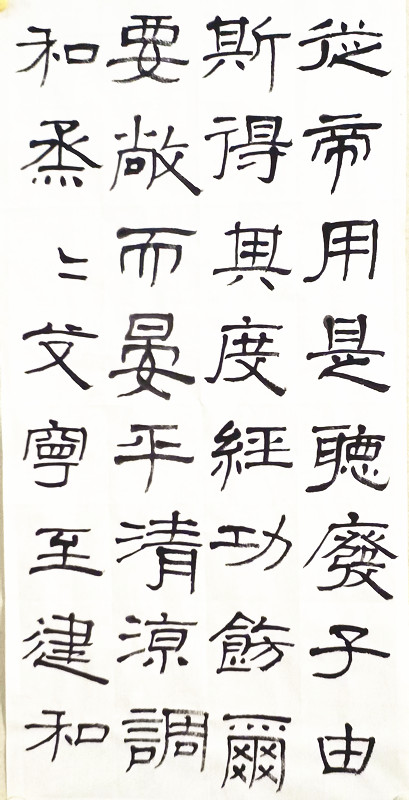 從帝用是聽廢子由
斯得其度經功飭爾
要敞而晏平清涼調
和烝〻艾寧至建和